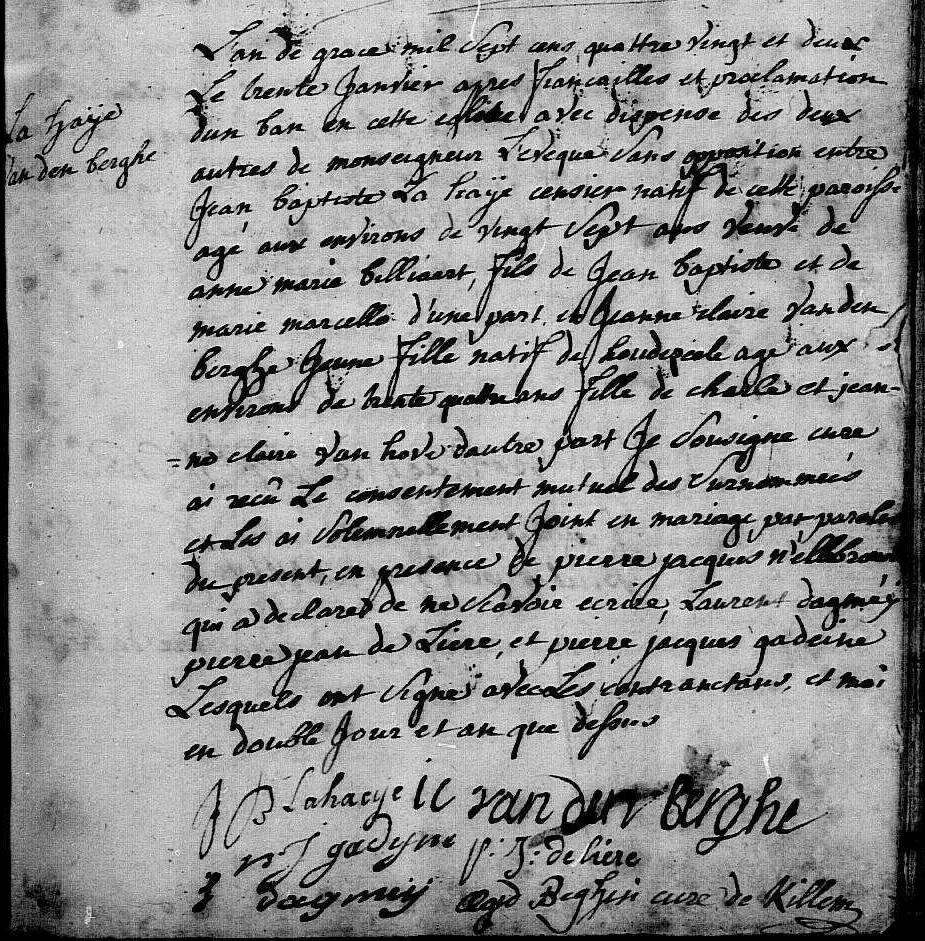 La haÿe
Van den berghe
L'an de grace mil Sept cens quattre vingt et deux
Le trente Janvier apres fiancailles et proclamation
dun ban en cette eglise avec dispense des deux
autres de monseigneur L'eveque Sans opposition entre
Jean baptiste La haÿe censier natif de cette paroisse
agé aux environs de vingt Sept ans veuve de
anne marie billiaert, fils de Jean baptiste et de
marie marcello d'une part, et Jeanne claire van den
berghe Jeune fille natif de houdezeele age aux
environs de trente quattre ans fille de charle et jean-
=ne claire van hove dautre part Je Sousigne cure
ai recû Le consentement mutuel des Surnommeés
et Les ai Solemnellement Joint en mariage par paroles
du present, en presence de pierre jacques
qui a declaré de ne Scavoir ecrire, Laurent dagmeÿ
pierre jean de Liere, et pierre jacques gadeine
Lesquels ont Signé avec Les contractans, et moi
en double Jour et an que dessus
J B Lahaeye i c van den berghe
p J gadyne p: J: deliere
dagmeij Beghin cure de Killem